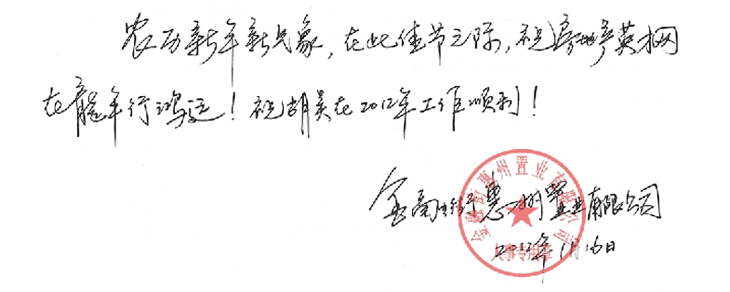 农历新年新气象，在此佳节之际，祝房地产英才网
在龍年行鸿运！祝胡昊在2012年工作顺利！
金融街惠州置业有限公司
2012年1月16日
金融街惠州置业有限公司
人事专用章